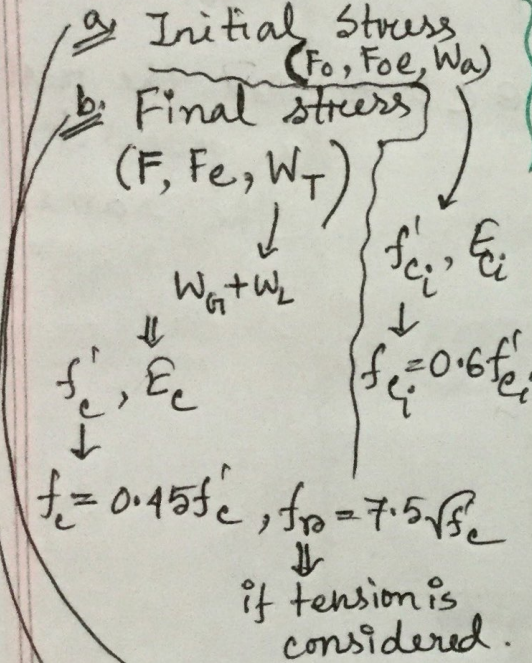 a. Initial Stress
(F₀, F₀e, Wa)
b. Final stress
(F, Fe, W_T)
↓
W_G + W_L
⇓
f'_c, E_c
↓
f_c = 0.45f'_c, f_r = 7.5√f'_c
⇓
if tension is
considered.
f'_ci, E_ci
↓
f_ci = 0.6f'_ci